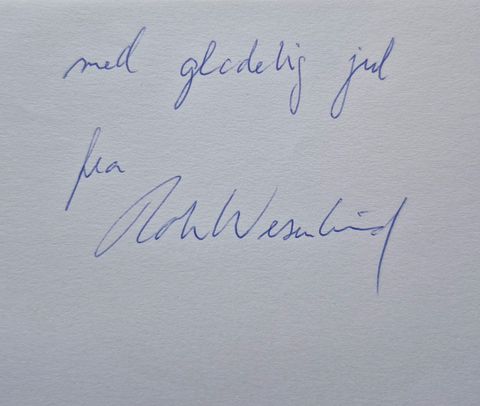 med gledelig jul
fra
Rolv Wesenlund